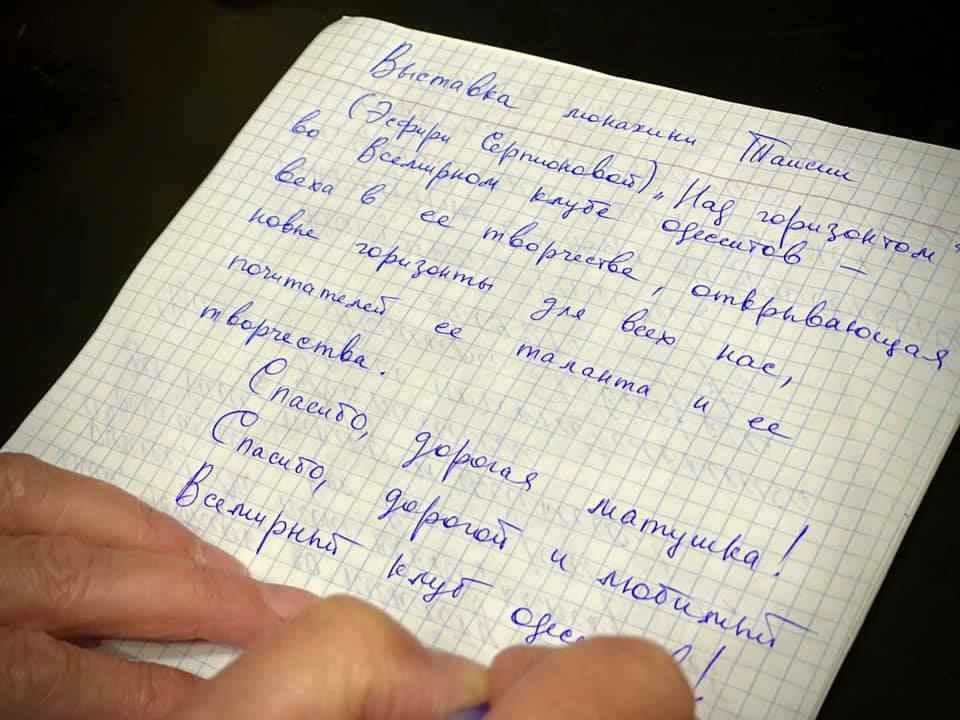 Выставка монахини Таисии
(Эсфири Серпионовой) „Над горизонтом“
во Всемирном клубе одесситов —
веха в ее творчестве, открывающая
новые горизонты для всех нас,
почитателей ее таланта и ее
творчества.
Спасибо, дорогая матушка!
Спасибо, дорогой и любимый
Всемирный клуб